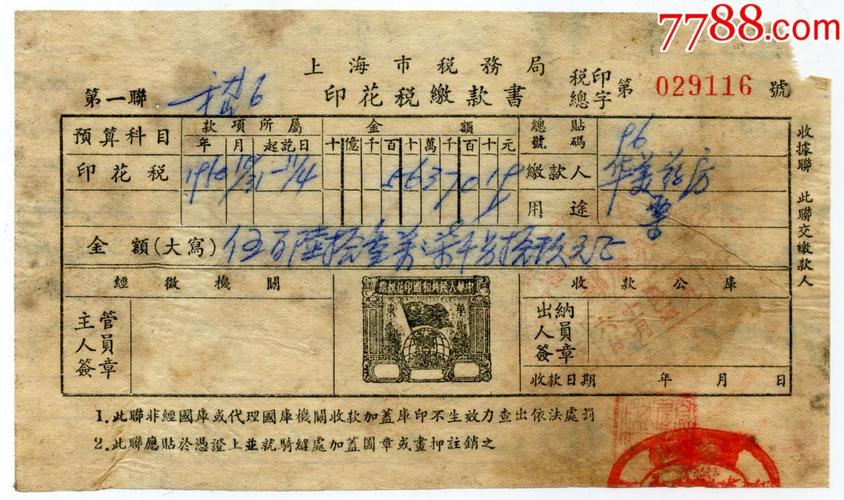 7788.com
上海市税務局
印花税繳款書
税印總字第 029116 號
第一聯
預算科目 款項所屬 年 月 起訖日 金額 十億千百十萬千百十元 總號 貼碼 96
印花税 5637019 繳款人 华美药房
用途
金額(大寫) 伍百陸拾叁萬柒千另拾玖元正
經徵機關 收款公庫
中華人民共和國印花税票
主管人員簽章 出納人員簽章
收款日期 年 月 日
1.此聯非經國庫或代理國庫機關收款加蓋庫印不生效力查出依法處罰
2.此聯應貼於憑證上並就騎縫處加蓋圖章或畫押註銷之
收據聯 此聯交繳款人